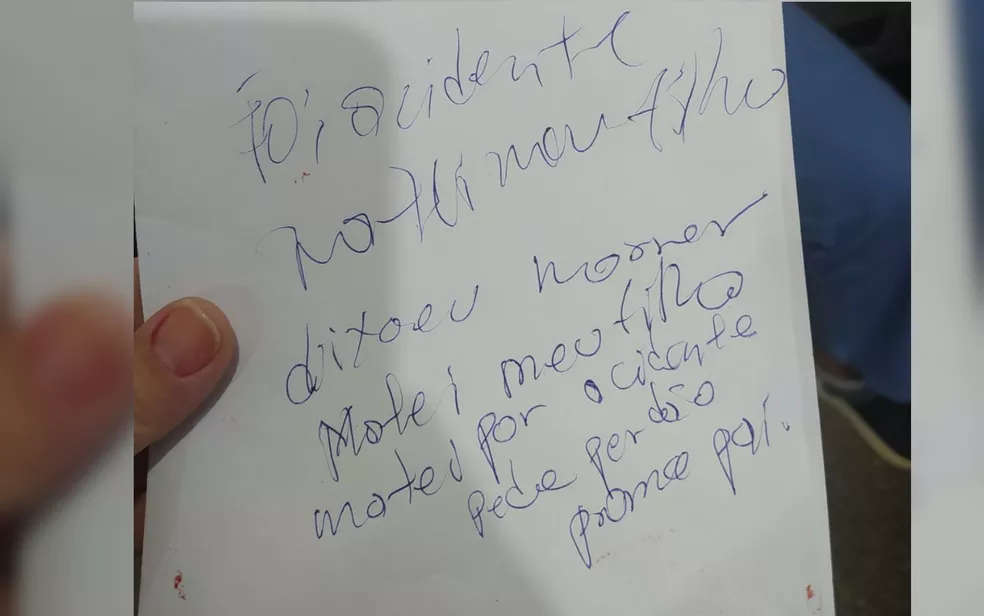 Foi acidente
Matei meu filho
dixaeu morrer
Matei meu filho
matei por acidente
pede perdão
prome pai.